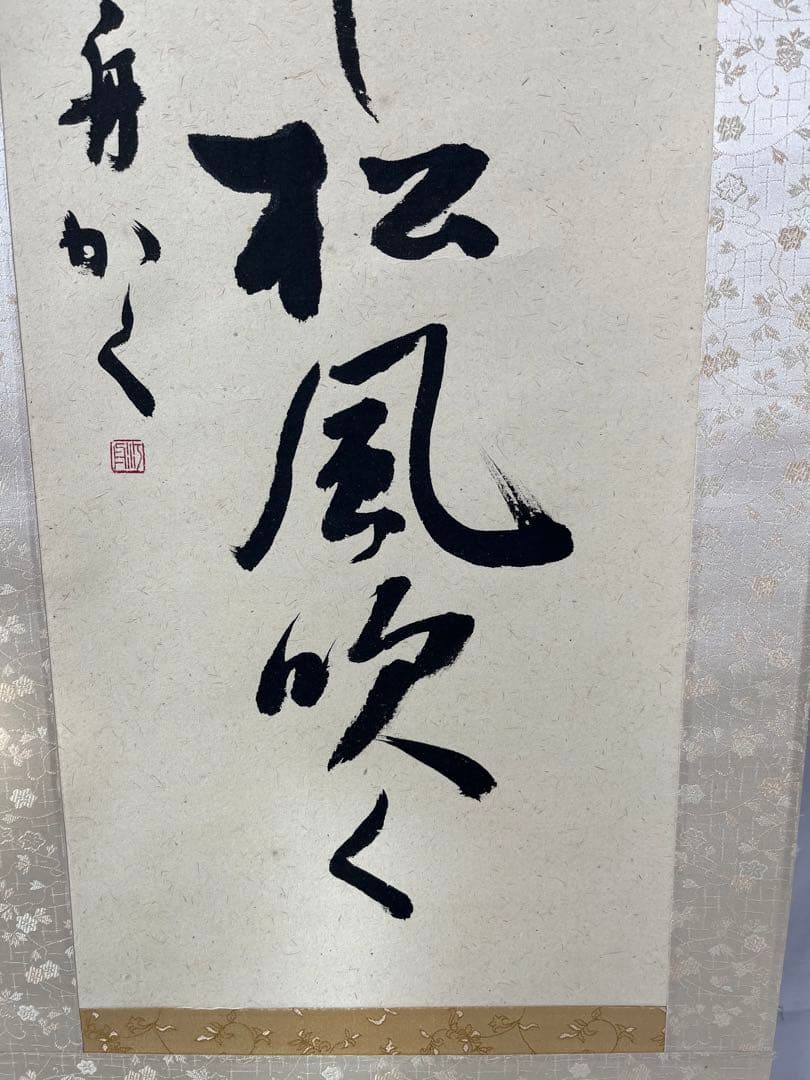 松風吹く
舟かく